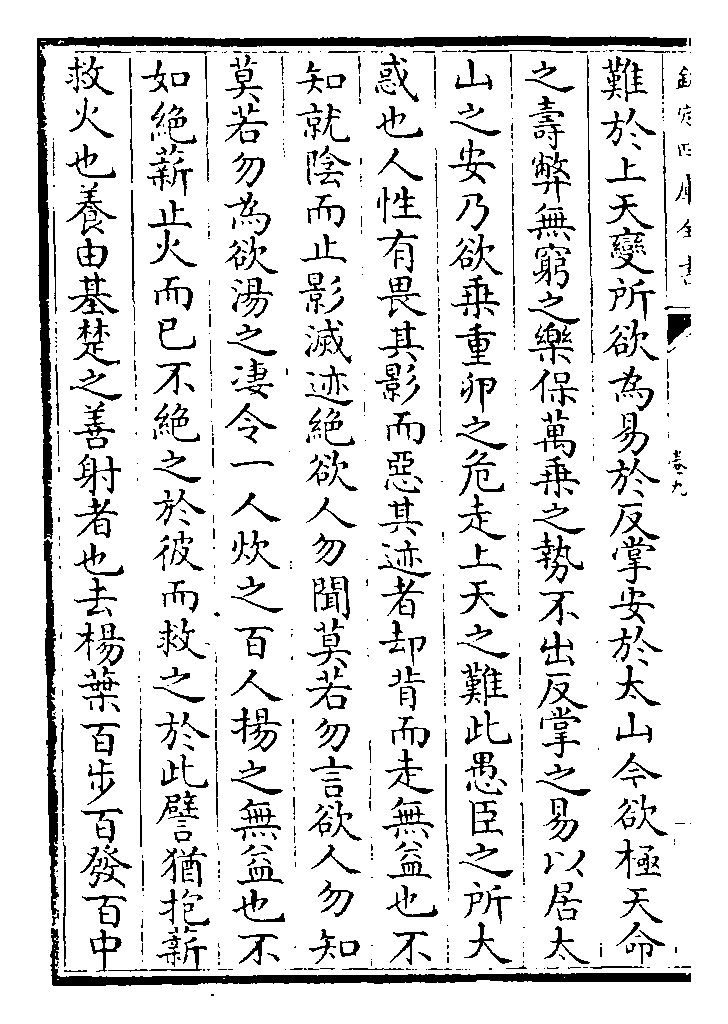 欽定四庫全書
卷九
難於上天變所欲為易於反掌安於太山今欲極天命
之壽弊無窮之樂保萬乘之勢不出反掌之易以居太
山之安乃欲乗重卵之危走上天之難此愚臣之所大
惑也人性有畏其影而惡其迹者却背而走無益也不
知就陰而止影滅迹絶欲人勿聞莫若勿言欲人勿知
莫若勿為欲湯之凄令一人炊之百人揚之無益也不
如絶薪止火而已不絶之於彼而救之於此譬猶抱薪
救火也養由基楚之善射者也去楊葉百步百發百中